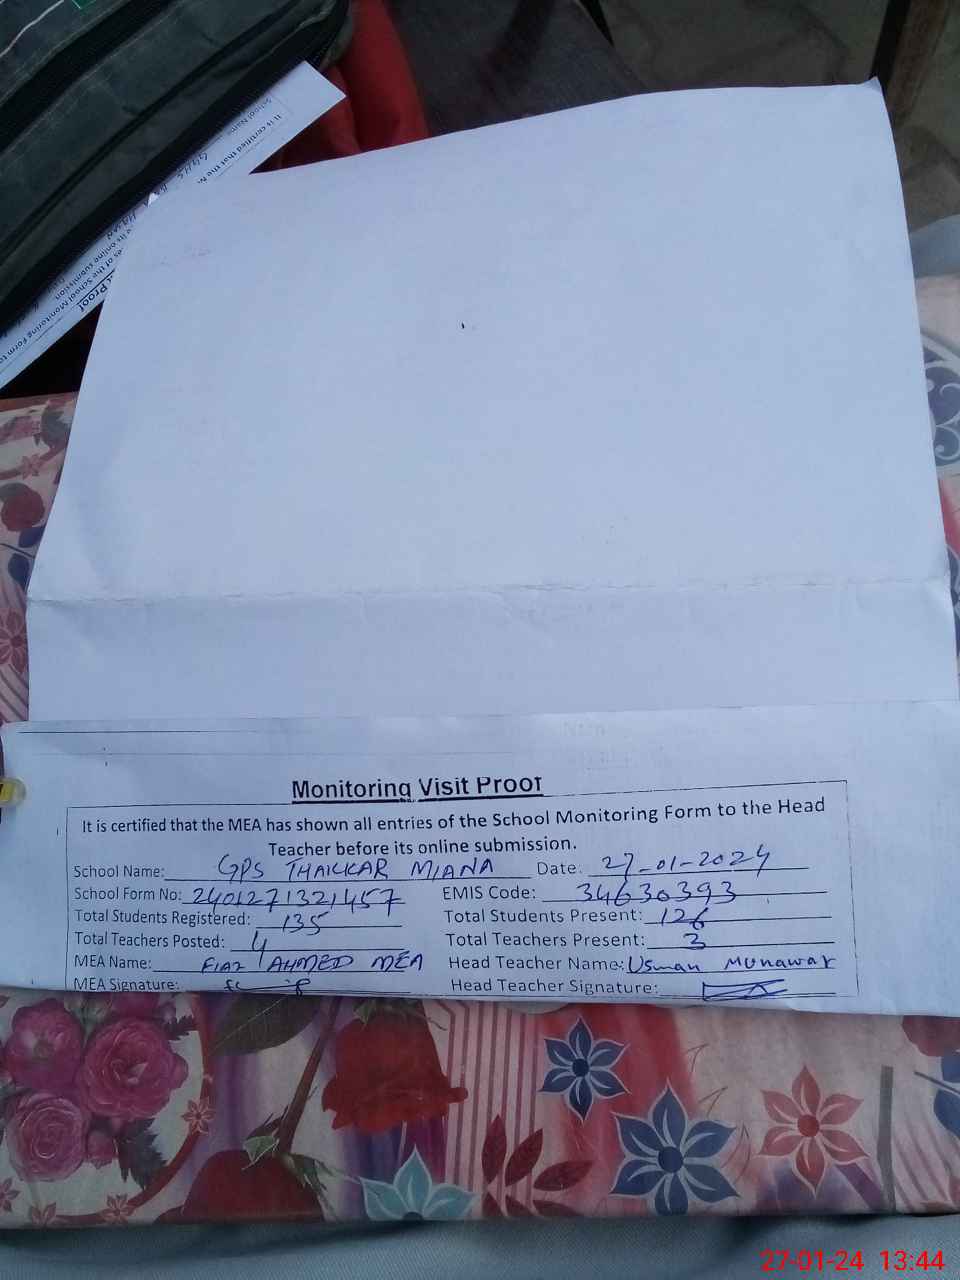 School Name
It is certified that the
Monitoring Visit Proof
It is certified that the MEA has shown all entries of the School Monitoring Form to the Head
Teacher before its online submission.
School Name: GPS THAIKKAR MIANA Date: 27-01-2024
School Form No: 2401271321457 EMIS Code: 34630393
Total Students Registered: 135 Total Students Present: 126
Total Teachers Posted: 4 Total Teachers Present: 3
MEA Name: FIAZ AHMED MEA Head Teacher Name: Usman Munawar
MEA Signature: Head Teacher Signature:
27-01-24 13:44